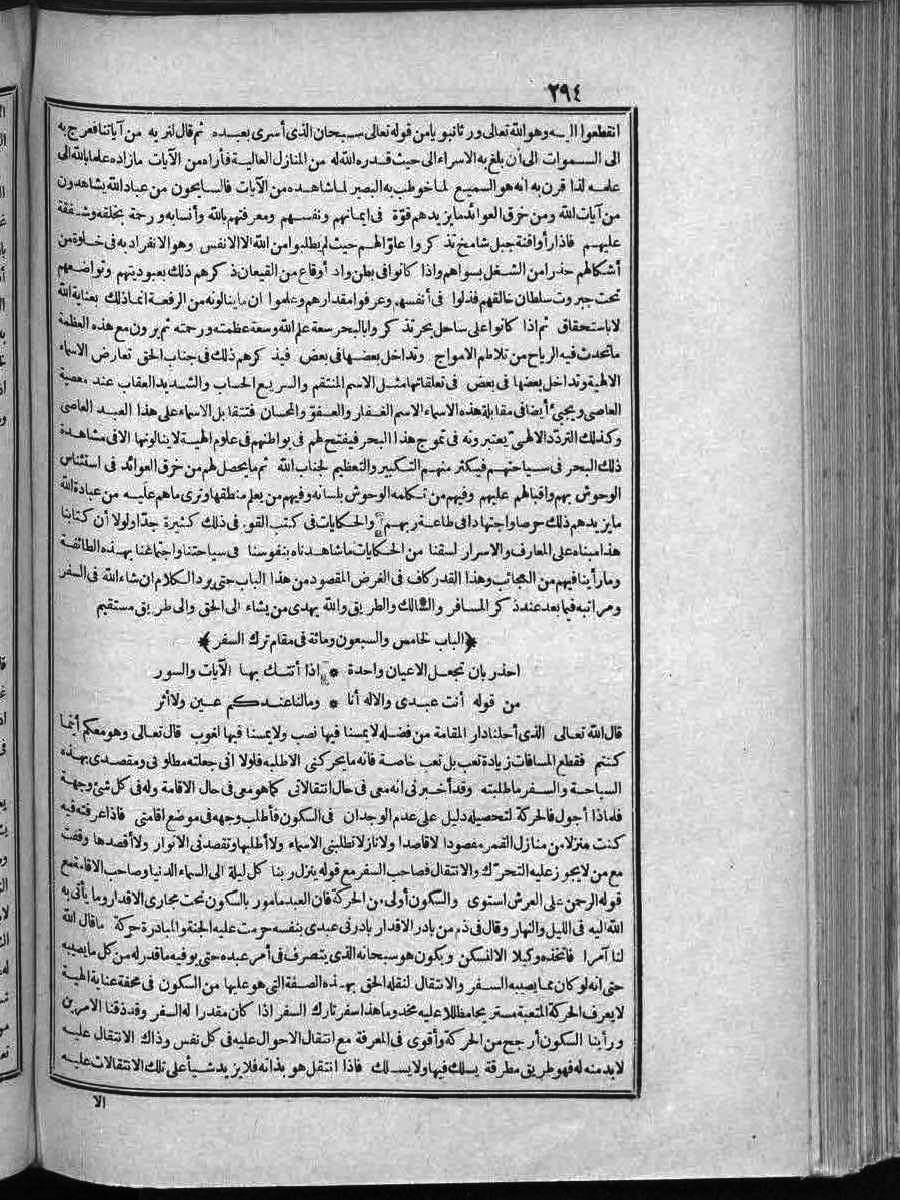 ٢٩٤
انقطعوا اليه وهو الله تعالى ورثا نبويا من قوله تعالى سبحان الذى أسرى بعبده ثم قال لنريه من آياتنا فعرج به
الى السموات الى أن بلغ به الاسراء الى حيث قدره الله له من المنازل العالية فأراه من الآيات مازاده علما بالله الى
علمه لذا قرن به انه هو السميع لما خوطب به البصير لما شاهده من الآيات فالسايحون من عباد الله يشاهدون
من آيات الله ومن خرق العوائد ما يزيدهم قوّة فى ايمانهم ونفسهم ومعرفتهم بالله وأنسا به ورحمة بخلقه وشفقة
عليهم فاذا رأوا قنة جبل شامخ تذكروا علوّ الهمم حيث لم يطلبوا من الله الا الانفس وهو الانفراد به فى خلوة من
أشكالهم حذرا من الشغل بسواهم واذا كانوا فى بطن واد أو قاع من القيعان ذكرهم ذلك بعبوديتهم وتواضعهم
تحت جبروت سلطان خالقهم فذلوا فى أنفسهم وعرفوا مقدارهم وعلموا ان ما ينالونه من الرفعة انما ذلك بعناية الله
لا باستحقاق ثم اذا كانوا على ساحل بحر تذكروا بالبحر سعة علم الله وسعة عظمته ورحمته ثم يرون مع هذه العظمة
ما تحدث فيه الرياح من تلاطم الامواج وتداخل بعضها فى بعض فيذكرهم ذلك فى جناب الحق تعارض الاسماء
الالهية وتداخل بعضها فى بعض فى تعلقاتها مثل الاسم المنتقم والسريع الحساب والشديد العقاب عند معصية
العاصى ويجئ أيضا فى مقابلة هذه الاسماء الاسم الغفار والعفوّ والمحسان فتتقابل الاسماء على هذا العبد العاصى
وكذلك التردّد الالهىّ يعتبرونه فى تموج هذا البحر فيفتح لهم فى بواطنهم فى علوم الهية لا ينالونها الا فى مشاهدة
ذلك البحر فى سياحتهم فيكثر منهم التكبير والتعظيم لجناب الله ثم ما يحصل لهم من خرق العوائد فى استئناس
الوحوش بهم واقبالهم عليهم وفيهم من تكلمه الوحوش بلسانه وفيهم من يعلم منطقها ونرى ما هم عليه من عبادة الله
ما يزيدهم ذلك حرصا واجتهادا فى طاعة ربهم والحكايات فى كتب القوم فى ذلك كثيرة جدّا ولولا أن كتابنا
هذا مبناه على المعارف والاسرار لسقنا من الحكايات ما شاهدناه بنفوسنا فى سياحتنا واجتماعنا بهذه الطائفة
وما رأينا فيهم من العجائب وهذا القدر كاف فى الغرض المقصود من هذا الباب حتى يرد الكلام ان شاء الله فى السفر
ومراتبه فيما بعد عند ذكر المسافر والسالك والطريق والله يهدى من يشاء الى الحق والى طريق مستقيم
﴿الباب الخامس والسبعون ومائة فى مقام ترك السفر﴾
احذر بان تجعل الاعيان واحدة * اذا أتتك بها الآيات والسور
من قوله أنت عبدى والاله أنا * وما لنا عندكم عين ولا أثر
قال الله تعالى الذى أحلنا دار المقامة من فضله لا يمسنا فيها نصب ولا يمسنا فيها لغوب قال تعالى وهو معكم أينما
كنتم فقطع المسافات زيادة تعب بل تعب خاصة فانه ما يحركنى الا طلبه فلولا انى جعلته مطلوبى ومقصدى بهذه
السياحة والسفر ما طلبته وقد أخبرنى انه معى فى حال انتقالاتى كما هو معى فى حال الاقامة وله فى كل شئ وجهة
فلماذا أجول فالحركة لتحصيله دليل على عدم الوجدان فى السكون فأطلب وجهه فى موضع اقامتى فاذا عرفته فيه
كنت منزلا من منازل القمر مقصودا لا قاصدا ولا نازلا تطلبنى الاسماء ولا أطلبها وتقصدنى الانوار ولا أقصدها وقفت
مع من لا يجوز عليه التحرّك والانتقال فصاحب السفر مع قوله ينزل ربنا كل ليلة الى السماء الدنيا وصاحب الاقامة مع
قوله الرحمن على العرش استوى والسكون أولى من الحركة فان العبد مأمور بالسكون تحت مجارى الاقدار وما يأتى به
الله اليه فى الليل والنهار وقال فى ذم من بادر الاقدار بادرنى عبدى بنفسه حرمت عليه الجنة والمبادرة حركة ما قال الله
لنا آمرا فاتخذه وكيلا الا لنسكن ويكون هو سبحانه الذى يتصرف فى أمر عبده حتى يوفيه ما قدر له من كل ما يصيبه
حتى انه لو كان مما يصيبه السفر والانتقال لنقله الحق بهذه الصفة التى هو عليها من السكون فى محفة عناية الهية
لا يعرف الحركة المتعبة مستريحا مظللا عليه مخدوما هذا سفر تارك السفر اذا كان مقدرا له السفر وقد ذقنا الامرين
ورأينا السكون أرجح من الحركة وأقوى فى المعرفة مع انتقال الاحوال عليه فى كل نفس وذاك الانتقال عليه
لا بد منه له فهو طريق مطرقة يسلك فيها ولا يسلك فاذا انتقل هو بذاته فلا يزيد شيأ على تلك الانتقالات عليه
الا